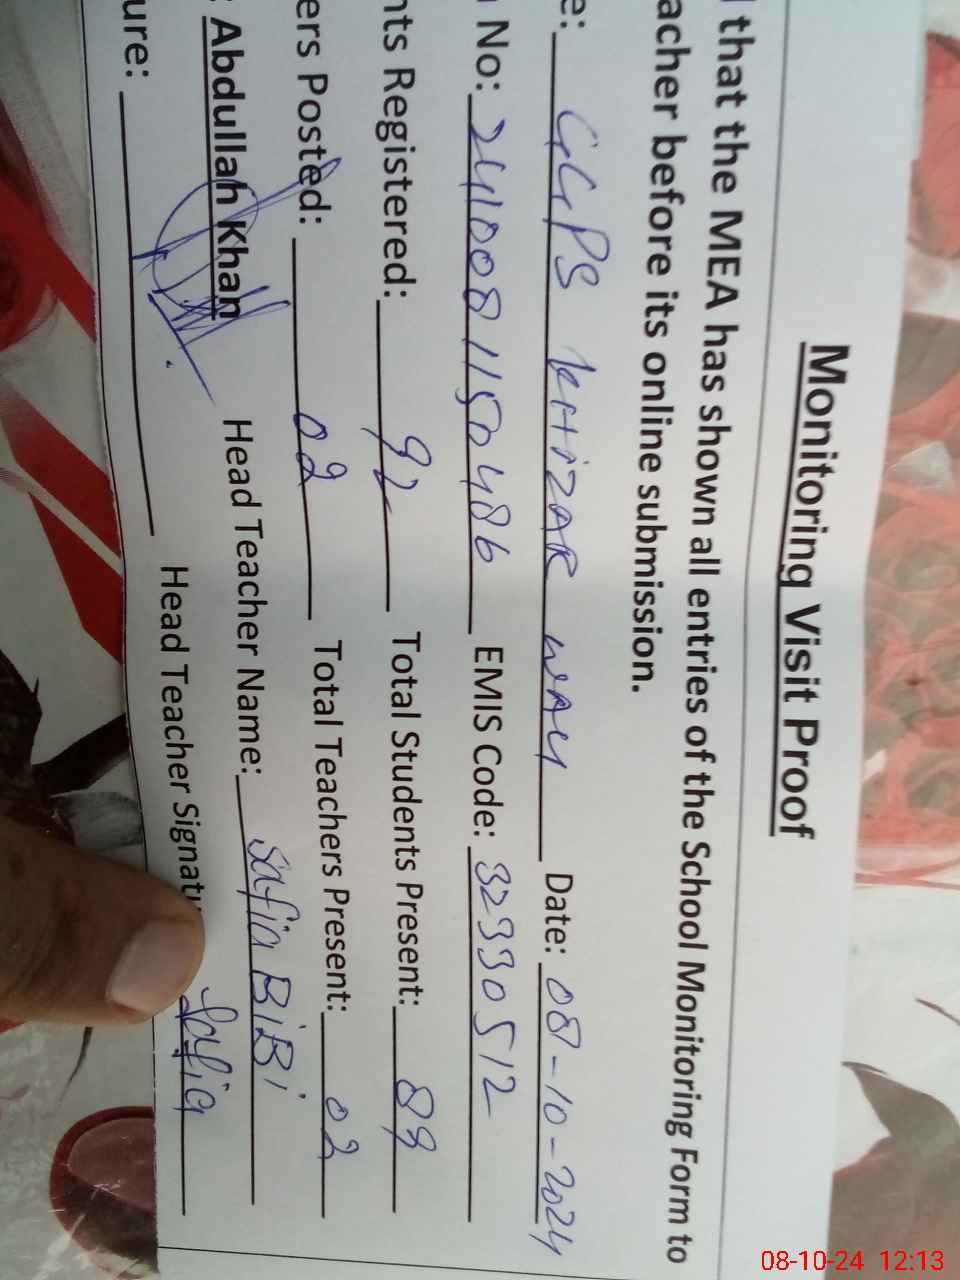 Monitoring Visit Proof
that the MEA has shown all entries of the School Monitoring Form to
acher before its online submission.
e: GGPS KHIZAR WALI Date: 08-10-2024
No: 2410081150486 EMIS Code: 32330512
nts Registered: 92 Total Students Present: 89
ers Posted: 02 Total Teachers Present: 02
: Abdullah Khan Head Teacher Name: Safia BiBi
ure: Head Teacher Signatu Safia
08-10-24 12:13